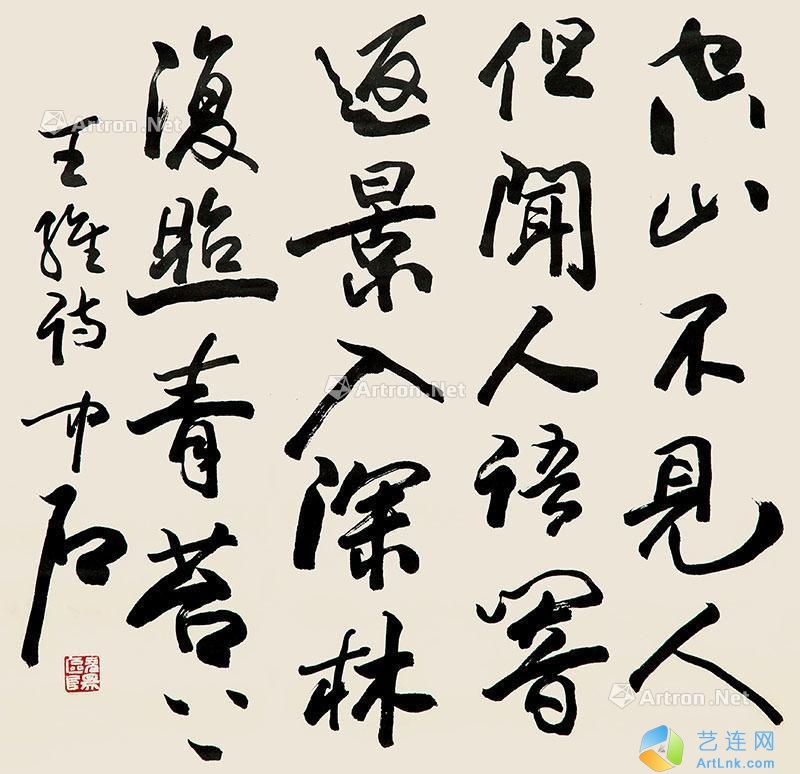 空山不見人
但聞人語響
返景入深林
復照青苔上
王維詩 中石
Artron.Net
Artron.Net
Artron.Net
Artron.Net
Artron.Net
艺连网
ArtLnk.com